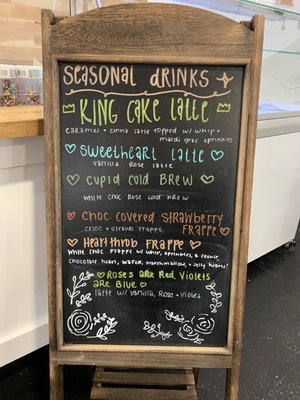 SEASONAL DRINKS
KING CAKE LATTE
CARAMEL + CINNA LATTE TOPPED W/ WHIP +
MARDI GRAS SPRINKLES
SWEETHEART LATTE
VANILLA ROSE LATTE
CUPID COLD BREW
WHITE CHOC ROSE COLD BREW
CHOC COVERED STRAWBERRY
FRAPPE
CHOC + STRAWB FRAPPE
HEARTTHROB FRAPPE
WHITE CHOC FRAPPE W/ WHIP, SPRINKLES, A COOKIE,
CHOCOLATE HEART, WAFER, MARSHMALLOW, + JELLY HEARTS!
ROSES ARE RED, VIOLETS
ARE BLUE
LATTE W/ VANILLA, ROSE +